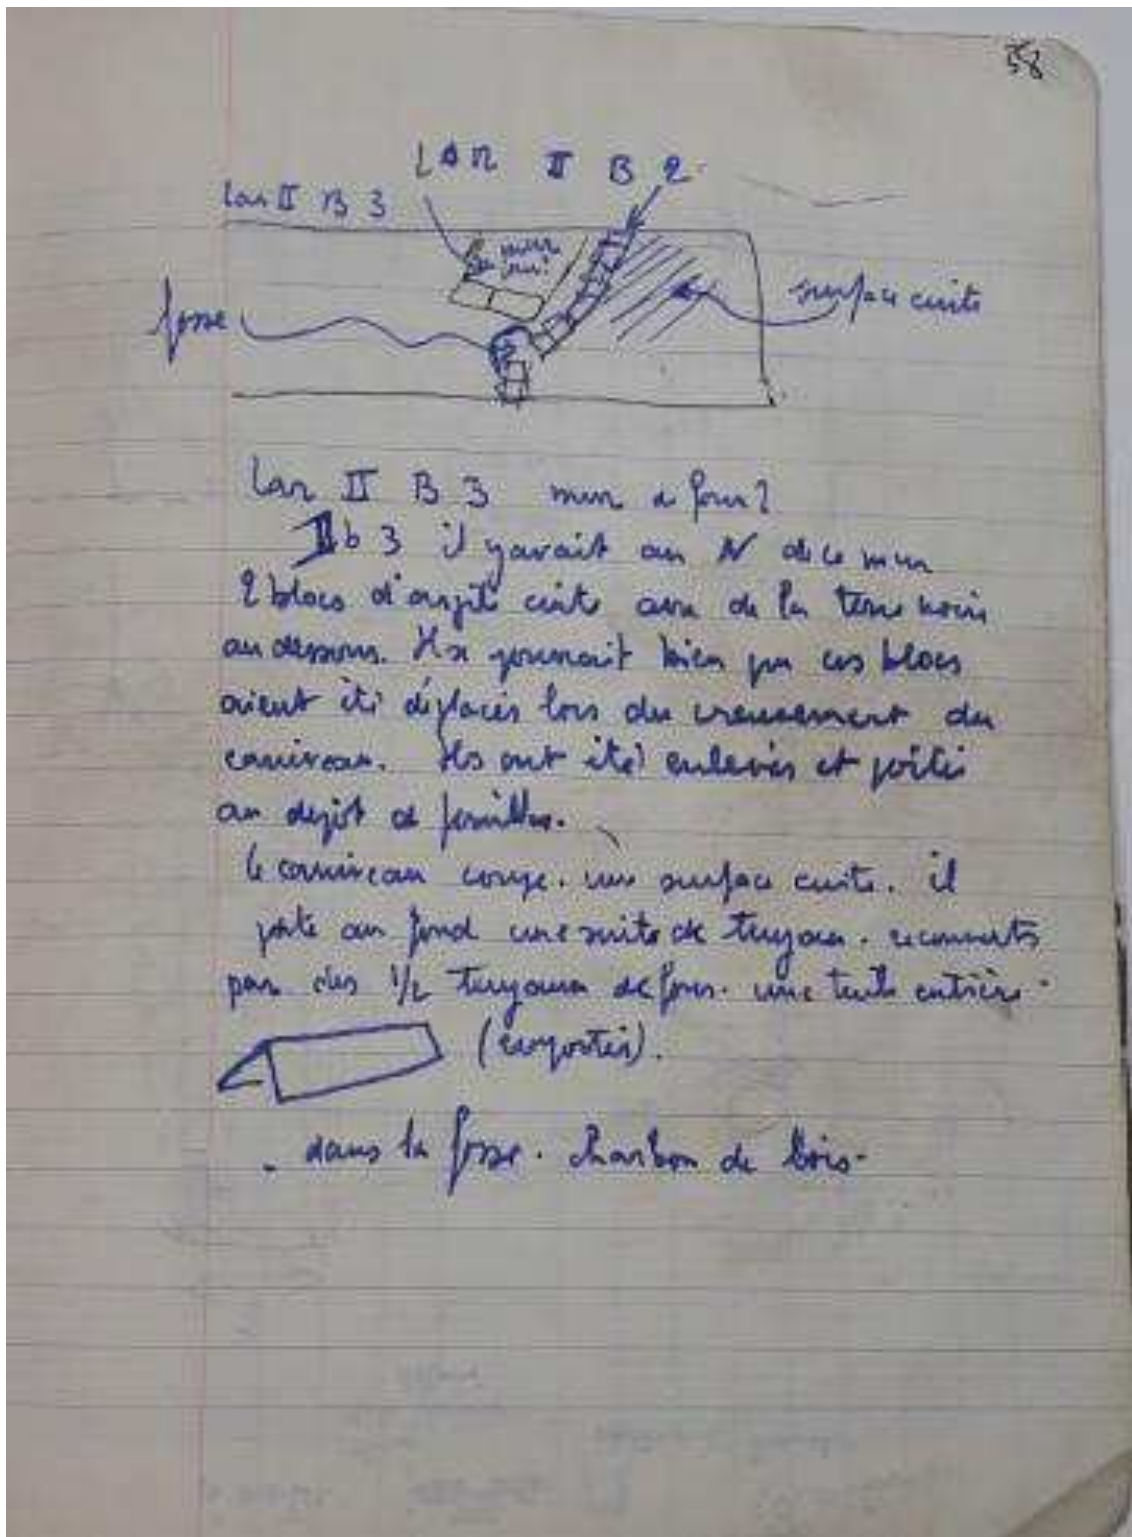 58
Lar II B 2
Lar II B 3
mur
fosse
surface cuite
Lar II B 3 mur de four?
II b 3 il y avait au N de ce mur
2 blocs d'argile cuite avec de la terre noire
au dessous. Il se pourrait bien que ces blocs
aient été déplacés lors du creusement du
caniveau. Ils ont été enlevés et portés
au dépôt de fouilles.
le caniveau coupe une surface cuite. il
porte au fond une suite de tuyaux recouverts
par des 1/2 tuyaux de four. une tuile entière
(emportée).
- dans la fosse. Charbon de bois-